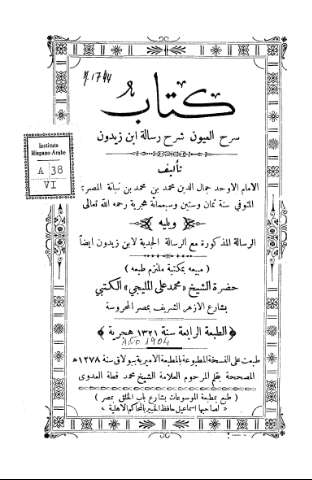 كتاب
سرح العيون شرح رسالة ابن زيدون
تأليف
الامام الاوحد جمال الدين محمد بن محمد بن نباتة المصرى
المتوفى سنة ثمان وستين وسبعمائة هجرية رحمه الله تعالى
وبليه
الرسالة المذكورة مع الرسالة الجدية لابن زيدون ايضاً
( مبيعه بمكتبة ملتزم طبعه )
حضرة الشيخ « محمد على المليجي » الكتبي
بشارع الازهر الشريف بمصر المحروسة
﴿ الطبعة الرابعة سنة ١٣٢١ هجرية ﴾
1904
طبعت على النسخة المطبوعة بالمطبعة الأميرية ببولاق سنة ١٢٧٨ ه
المصححة بقلم المرحوم العلامة الشيخ محمد قطة العدوى
( طبع بمطبعة الموسوعات بشارع باب الخلق بمصر )
« لصاحبها اسماعيل حافظ الخبير بالمحاكم الاهلية »
Instituto
Hispano-Arabe
A 38
VI